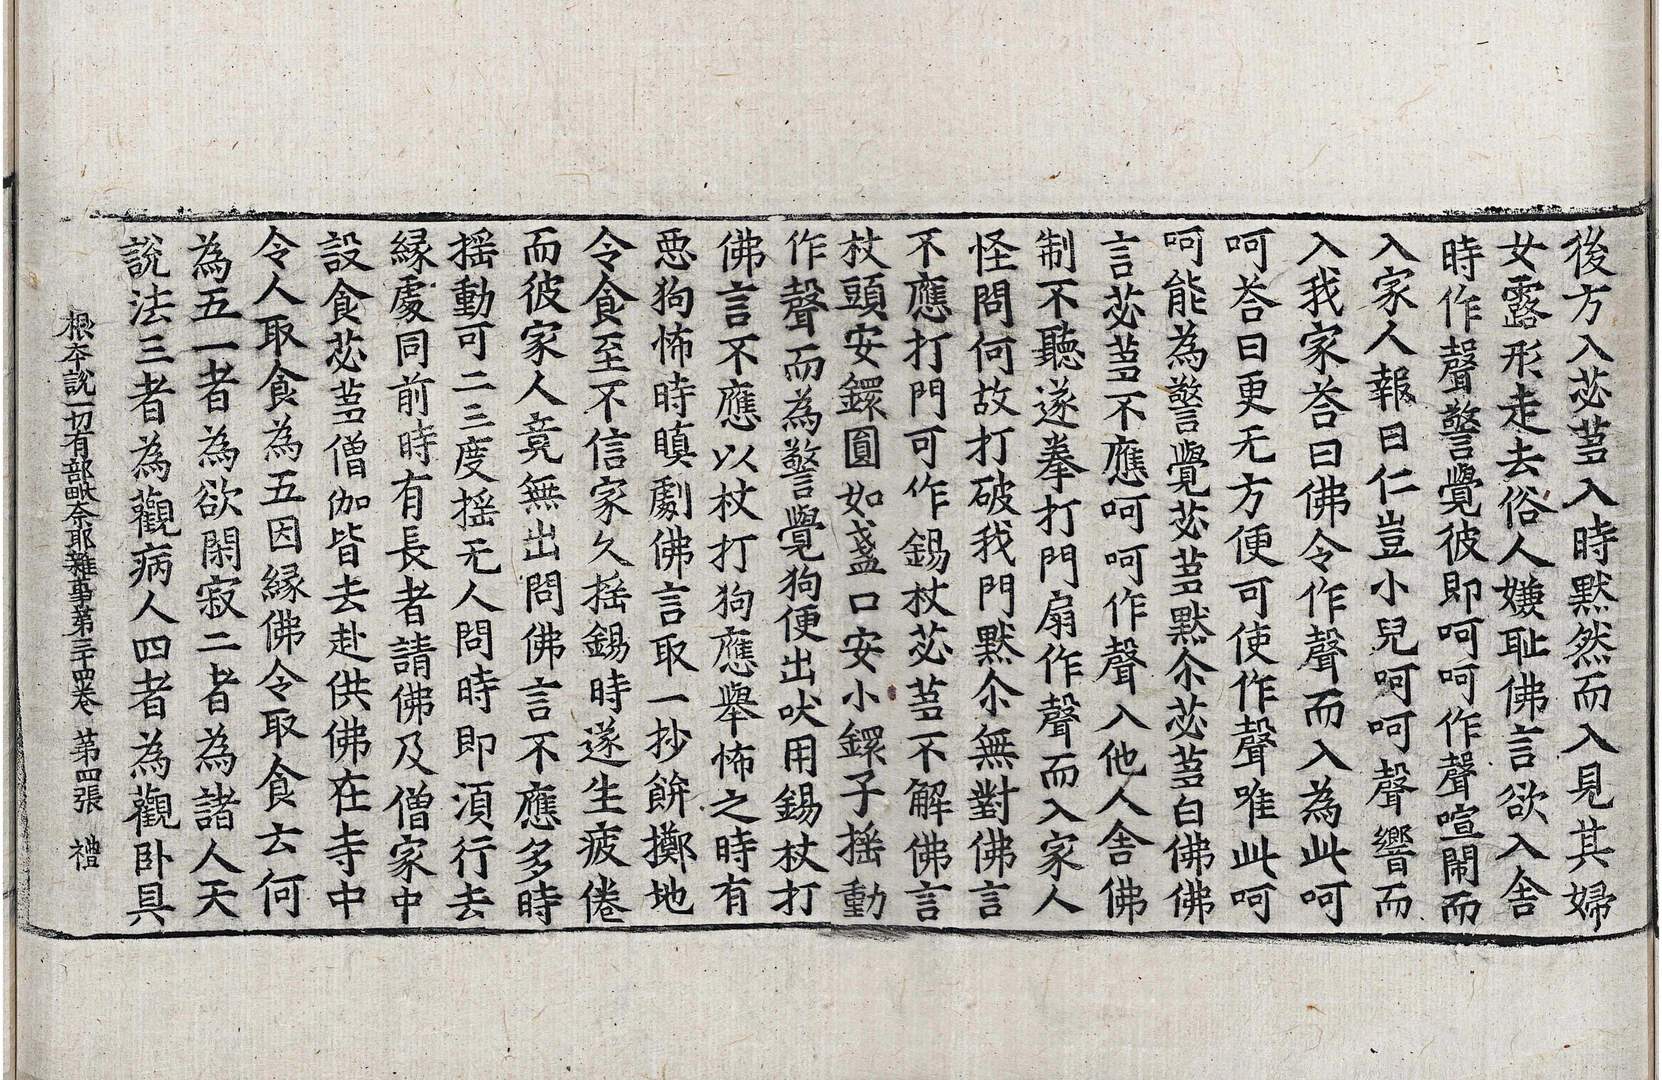 後方入苾蒭入時默然而入見其婦
女露形走去俗人嫌耻佛言欲入舍
時作聲警覺彼即呵呵作聲喧鬧而
入家人報曰仁豈小兒呵呵聲響而
入我家荅曰佛令作聲而入為此呵
呵荅曰更无方便可使作聲唯此呵
呵能為警覺苾蒭默尒苾蒭白佛佛
言苾蒭不應呵呵作聲入他人舍佛
制不聽遂拳打門扇作聲而入家人
怪問何故打破我門默尒無對佛言
不應打門可作錫杖苾蒭不解佛言
杖頭安鐶圓如盞口安小鐶子搖動
作聲而為警覺狗便出吠用錫杖打
佛言不應以杖打狗應舉怖之時有
惡狗怖時瞋劇佛言取一抄餅擲地
令食至不信家久搖錫時遂生疲倦
而彼家人竟無出問佛言不應多時
搖動可二三度搖无人問時即湏行去
緣處同前時有長者請佛及僧家中
設食苾蒭僧伽皆去赴供佛在寺中
令人取食為五因緣佛令取食云何
為五一者為欲閑寂二者為諸人天
說法三者為觀病人四者為觀卧具
根本說一切有部毗奈耶雜事第三十四卷 第四張 禮